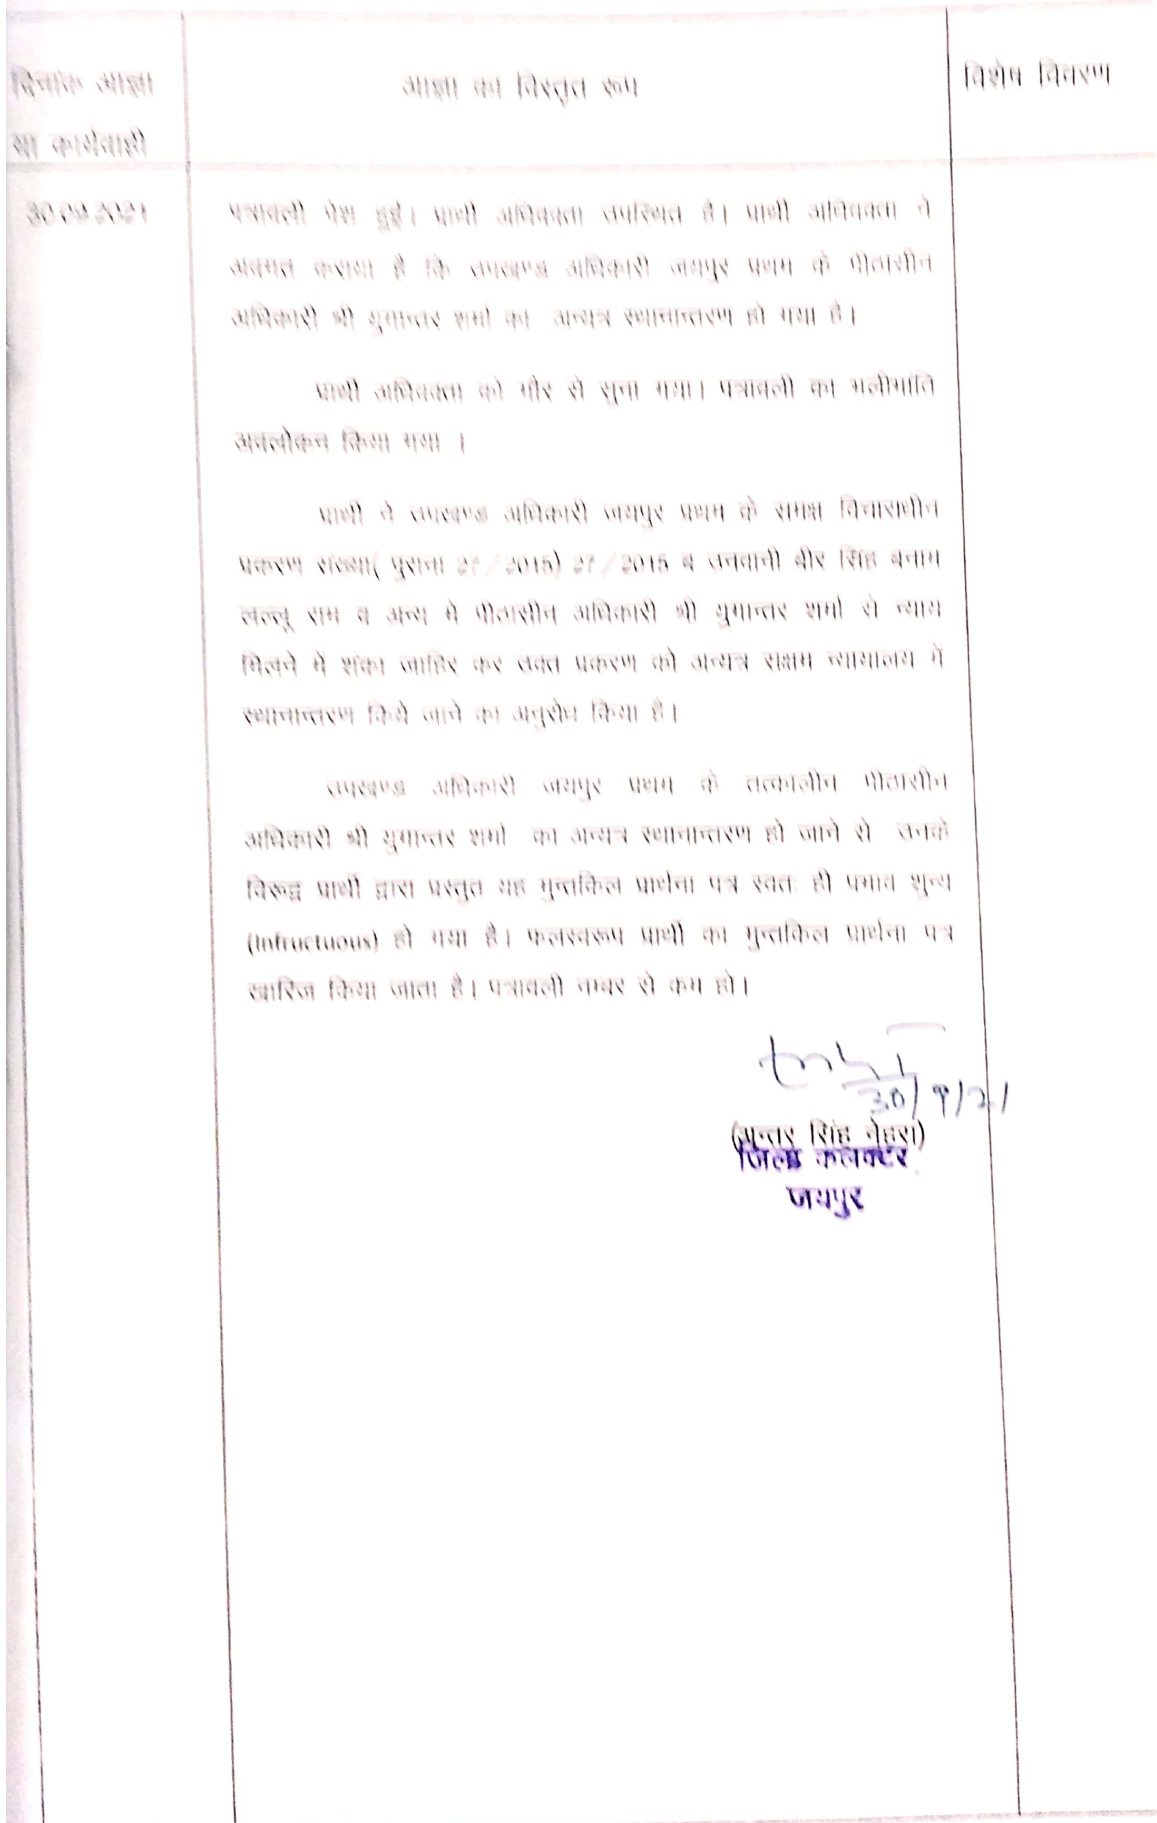 दिनांक आज्ञा
या कार्यवाही
आज्ञा का विस्तृत रूप
विशेष विवरण
30.09.2021
पत्रावली पेश हुई। प्रार्थी अधिवक्ता उपस्थित है। प्रार्थी अधिवक्ता ने
अवगत कराया है कि उपखण्ड अधिकारी जयपुर प्रथम के पीठासीन
अधिकारी श्री युगान्तर शर्मा का अन्यत्र स्थानान्तरण हो गया है।
प्रार्थी अधिवक्ता को गौर से सुना गया। पत्रावली का भलीभांति
अवलोकन किया गया ।
प्रार्थी ने उपखण्ड अधिकारी जयपुर प्रथम के समक्ष विचाराधीन
प्रकरण संख्या( पुराना 27/2015) 27/2015 ब उनवानी बीर सिंह बनाम
लल्लू राम व अन्य मे पीठासीन अधिकारी श्री युगान्तर शर्मा से न्याय
मिलने में शंका जाहिर कर उक्त प्रकरण को अन्यत्र सक्षम न्यायालय में
स्थानान्तरण किये जाने का अनुरोध किया है।
उपखण्ड अधिकारी जयपुर प्रथम के तत्कालीन पीठासीन
अधिकारी श्री युगान्तर शर्मा का अन्यत्र स्थानान्तरण हो जाने से उनके
विरूद्ध प्रार्थी द्वारा प्रस्तुत यह मुन्तकिल प्रार्थना पत्र स्वतः ही प्रभाव शुन्य
(Infructuous) हो गया है। फलस्वरूप प्रार्थी का मुन्तकिल प्रार्थना पत्र
खारिज किया जाता है। पत्रावली नम्बर से कम हो।
30/9/21
(अन्तर सिंह नेहरा)
जिला कलक्टर
जयपुर